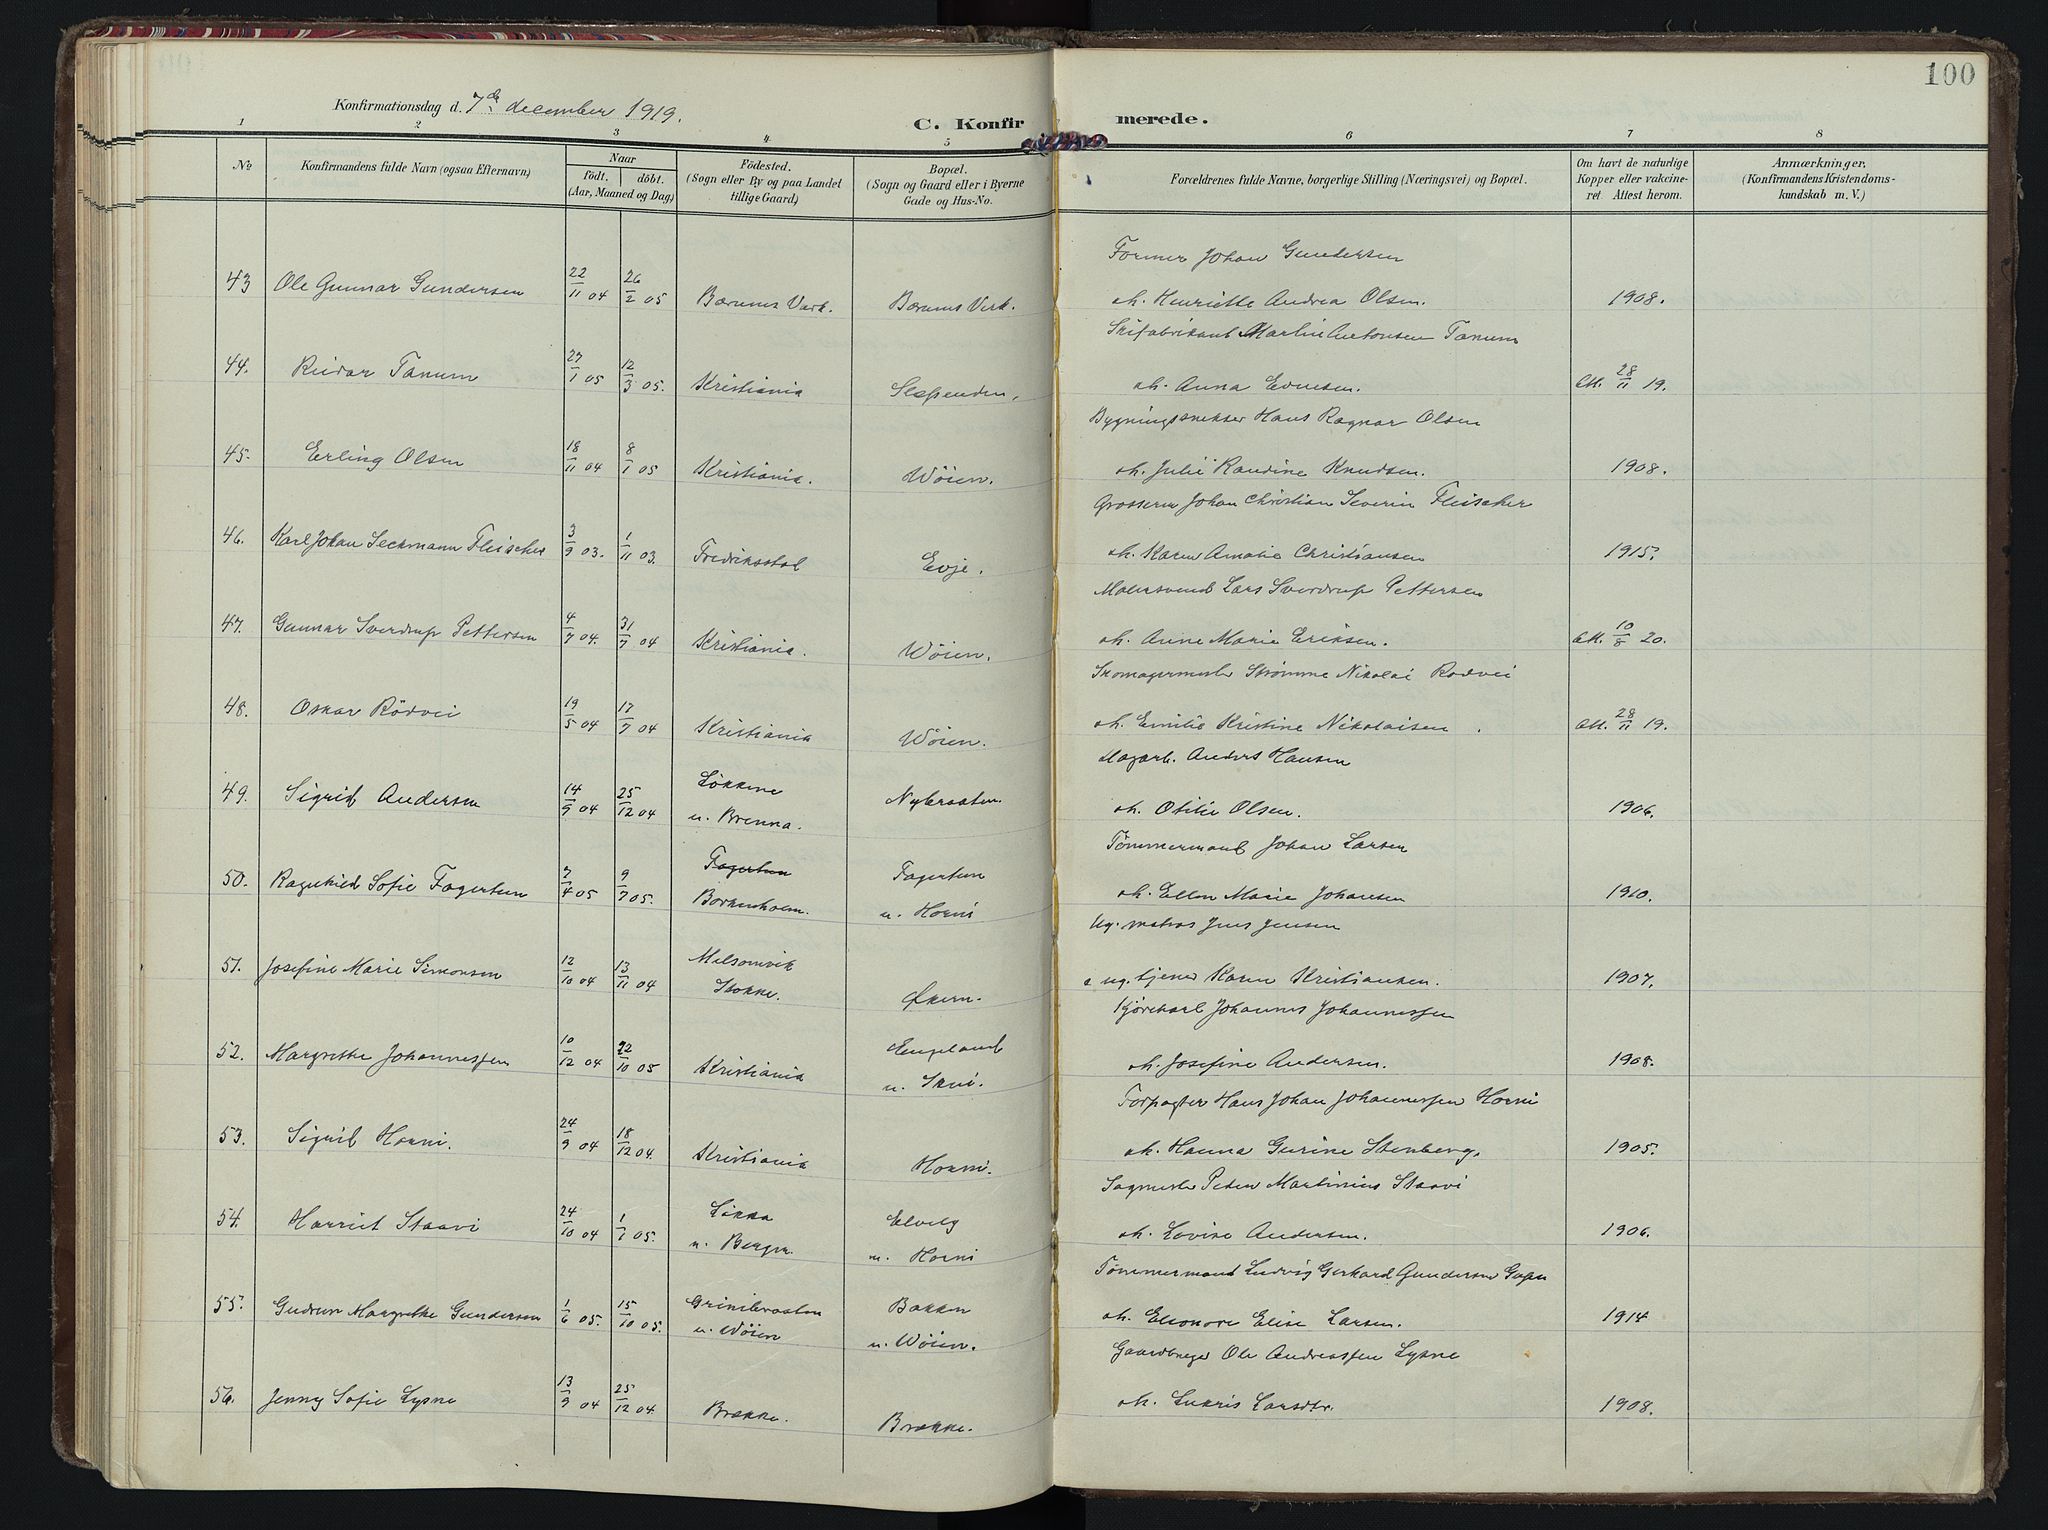 100
Konfirmationsdag d. 7de december 1919.
C. Konfirmerede.
1 2 3 4 5 6 7 8
No
Konfirmandens fulde Navn (ogsaa Efternavn)
Naar
födt. döbt.
(Aar, Maaned og Dag)
Födested.
(Sogn eller By og paa Landet
tillige Gaard)
Bopæl.
(Sogn og Gaard eller i Byerne
Gade og Hus-No.
Forældrenes fulde Navne, borgerlige Stilling (Næringsvei) og Bopæl.
Om havt de naturlige
Kopper eller vakcine-
ret Attest herom.
Anmærkninger.
(Konfirmandens Kristendoms-
kundskab m. V.)
Former Johan Gundersen
43 Ole Gunnar Gundersen 22/11 04 26/2 05 Bærums Værk. Bærums Verk. oh. Henriette Andrea Olsen. 1908.
Skifabrikant Martin Antonsen Tanum
44. Reidar Tanum 27/1 05 12/3 05. Kristiania Slependen. oh. Anna Evensen. Att. 28/11 19.
Bygningssnekker Hans Ragnar Olsen
45. Erling Olsen 18/11 04 8/1 05 Kristiania. Wöien. oh. Julie Randine Knudsen. 1908.
Grosserer Johan Christian Severin Fleischer
46. Karl Johan Seckmann Fleischer 3/9 03. 1/11 03. Fredriksstad Evje. oh. Karen Amalie Christiansen 1915.
Malersvend Lars Sverdrup Pettersen
47. Gunnar Sverdrup Pettersen 4/7 04. 31/7 04 Kristiania. Wöien. oh. Anne Marie Eriksen. Att. 10/8 20.
Skomagermester Strømme Nikolai Rødvei
48. Oskar Rödvei 19/5 04 17/7 04 Kristiania Wöien. oh. Emilie Kristine Nikolaisen. Att. 28/11 19.
Anders Hansen
49. Sigrid Andersen 14/9 04 25/12 04 Løkkene Nybraaten. oh. Otilie Olsen. 1906.
u. Brenna.
Tömmermand Johan Larsen
50. Ragnhild Sofie Fagertun 7/4 05 9/7 05. Fagertun Fagertun oh. Ellen Marie Johansen 1910.
Borkenholm. u. Horni
Ug. matros Jens Jensen
51. Josefine Marie Simonsen 12/10 04 13/11 04 Melsomvik ug. tjener Karen Kristiansen. 1907.
Stokke. Økern.
Kjørekarl Johannes Johannessen
52. Margrethe Johannessen 10/12 04 22/10 05 Kristiania Engeland oh. Josefine Andersen. 1908.
u. Skui.
Forpagter Hans Johan Johannessen Horni
53. Sigrid Horni. 24/9 04 18/12 04. Kristiania Horni. oh. Hanna Gurine Stenberg. 1905.
Sagmester Peder Martinius Staavi
54. Harriet Staavi 24/10 04 1/1 05. Løkka Elvelg oh. Lovise Andersen. 1906.
u. Berger. u. Horni
Tömmermand Ludvig Gerhard Gundersen
55. Gudrun Margrethe Gundersen 1/6 05. 15/10 05. Grinibraaten Bakken oh. Eleonore Elise Larsen. 1914
u. Wöien u. Wöien.
Gaardbruger Ole Andreassen Lysne
56. Jenny Sofie Lysne 13/9 04 25/12 04. Brække. Brække. oh. Lukris Larsdtr. 1908.